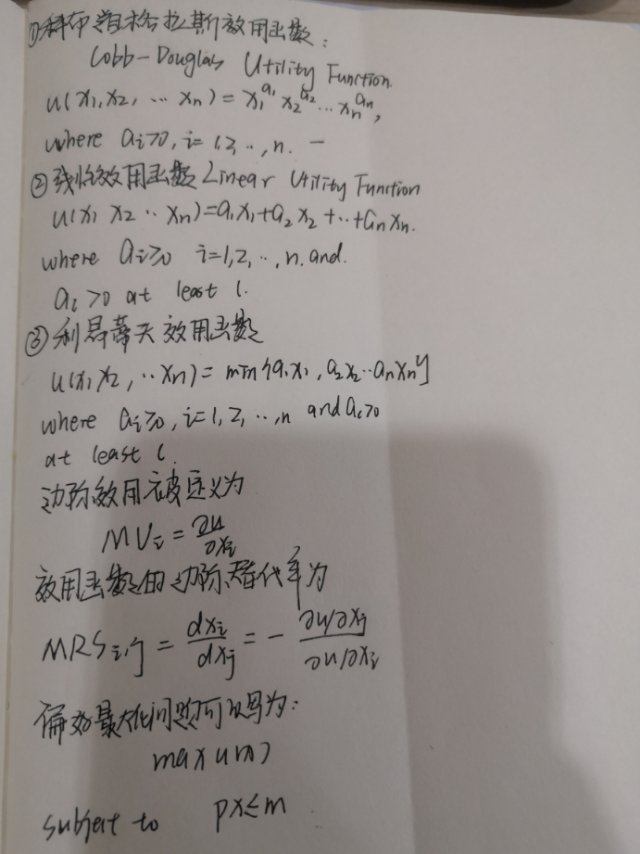 ①科布道格拉斯效用函数:
Cobb-Douglas Utility Function
u(x₁,x₂,…xₙ)=x₁^a₁ x₂^a₂…xₙ^aₙ,
where aᵢ>0,i=1,2,..,n. —
②线性效用函数Linear Utility Function
u(x₁ x₂..xₙ)=a₁x₁+a₂x₂+..+aₙxₙ.
where aᵢ≥0 i=1,2,..,n.and.
aᵢ>0 at least 1.
③利昂蒂夫效用函数
u(x₁x₂,..xₙ)=min{a₁x₁,a₂x₂..aₙxₙ}
where aᵢ≥0,i=1,2,..,n and aᵢ>0
at least 1.
边际效用被定义为
MUᵢ=∂u/∂xᵢ
效用函数的边际替代率为
MRSᵢ,ⱼ=dxᵢ/dxⱼ=-∂u/∂xⱼ/∂u/∂xᵢ
偏好最大化问题可以写为:
max u(x)
subject to px≤m